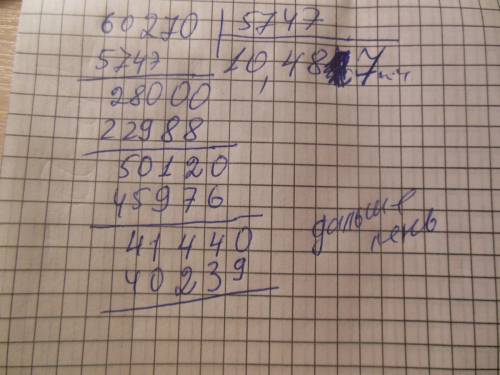 60270 | 5747
5747 10,487
28000
22988
50120
45976
41440
40239
дальше
лень